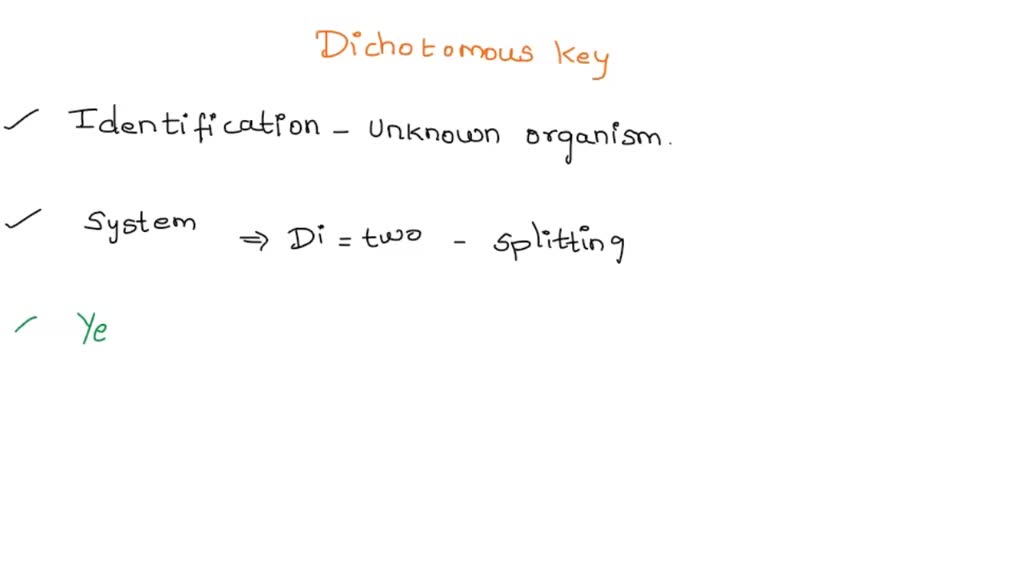 Dichotomous key
Identification - unknown organism.
System ⇒ Di = two - splitting
Ye